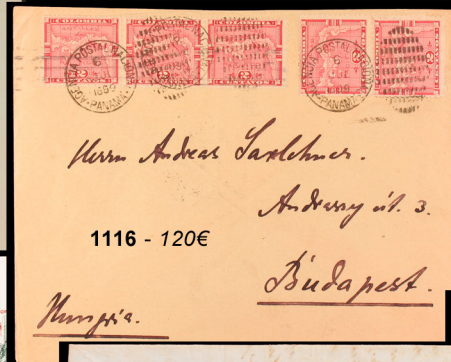 COLOMBIA COLOMBIA COLOMBIA
AGENCIA POSTAL NACIONAL
6
1899
PANAMA
AGENCIA POSTAL NACIONAL
6
PANAMA
Herrn Andreas Saxlehner.
Andrássy út. 3.
1116 - 120€
Budapest.
Hungria.